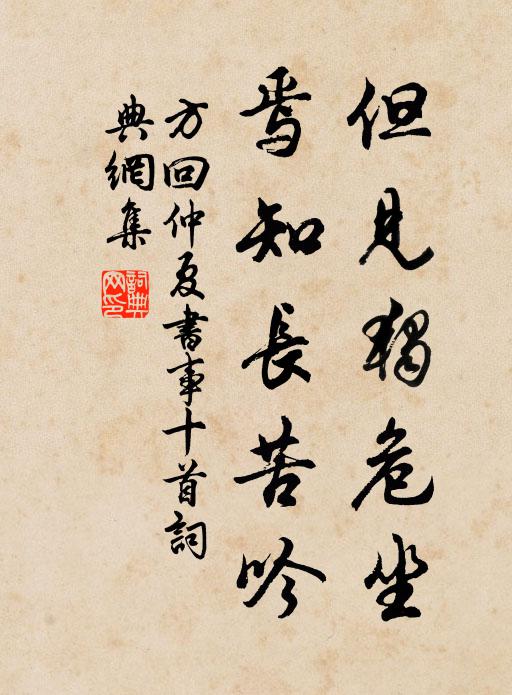 但見獨危坐
焉知長苦吟
方回仲夏書事十首詞
典網集
詞典网印